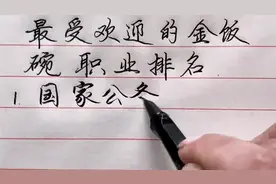 最受欢迎的金饭
碗 职业排名
1. 国家公